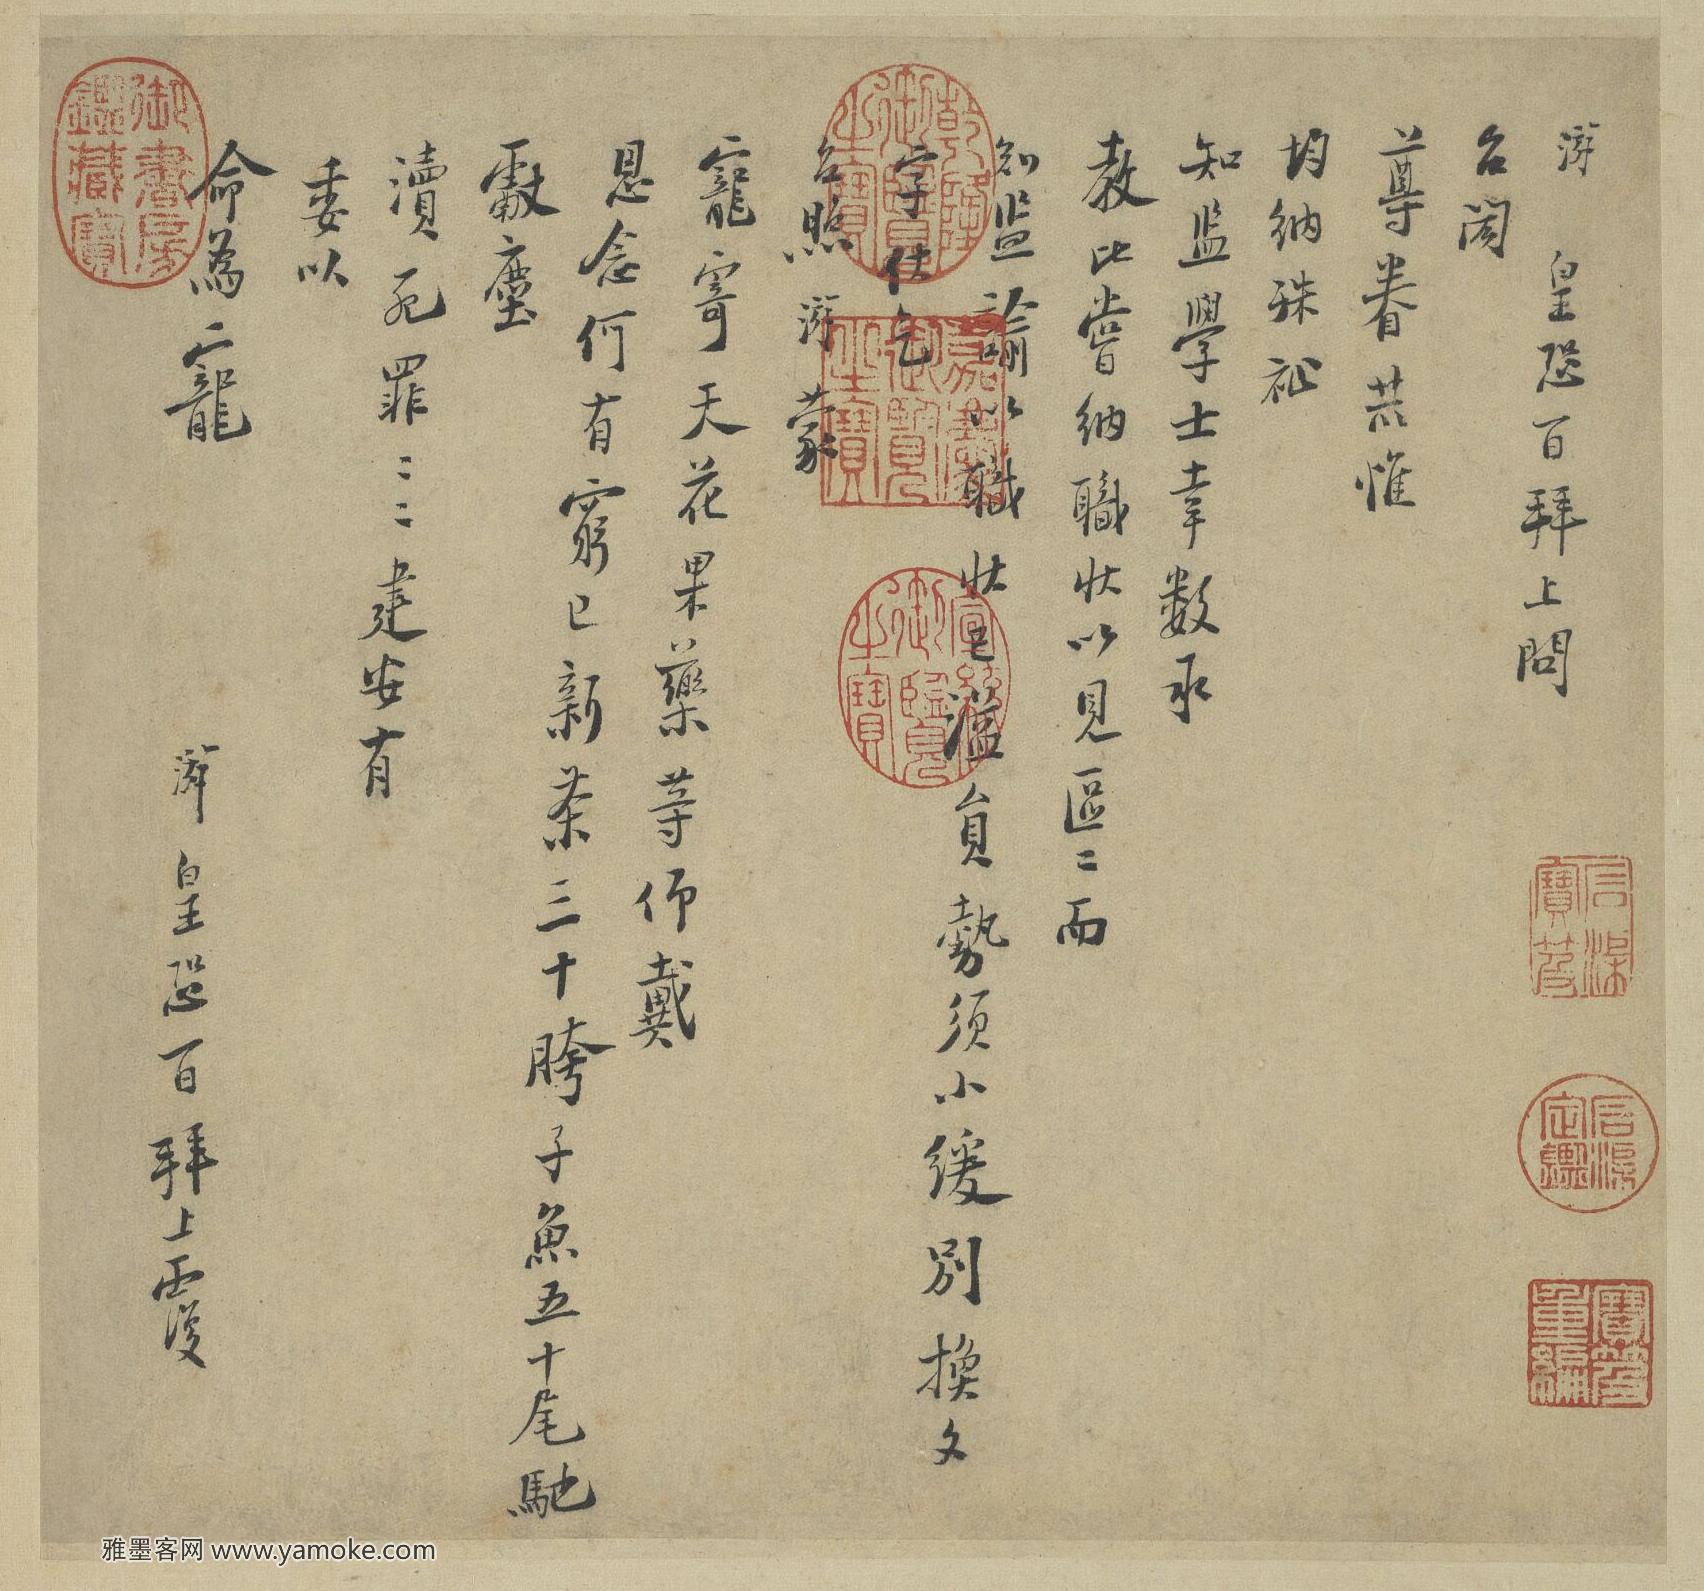 游 皇恐百拜上問
台閤
尊眷共惟
均納殊祉
知監學士幸数承
教比嘗納職狀以見區〻而
知監諭以職狀已溢員勢須小緩別換文
字伏乞
台照 游 蒙
寵寄天花果藥等仰戴
恩念何有窮已新茶三十胯子魚五十尾馳
獻塵
瀆死罪〻〻建安有
委以
命為寵
游皇恐百拜上覆
乾隆御覽之寶
嘉慶御覽之寶
宣統御覽之寶
御書房鑑藏寶
石渠寶笈
石渠定鑑
寶笈重編
雅墨客网 www.yamoke.com